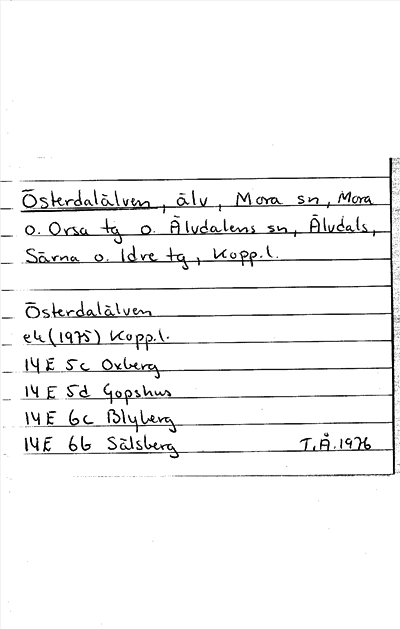 Österdalälven, älv, Mora sn, Mora
o. Orsa tg o. Älvdalens sn, Älvdals,
Särna o. Idre tg, Kopp.l.
Österdalälven
ek (1975) Kopp.l.
14 E 5c Oxberg
14 E 5d Gopshus
14 E 6c Blyberg
14E 6b Sälsberg T.Å.1976